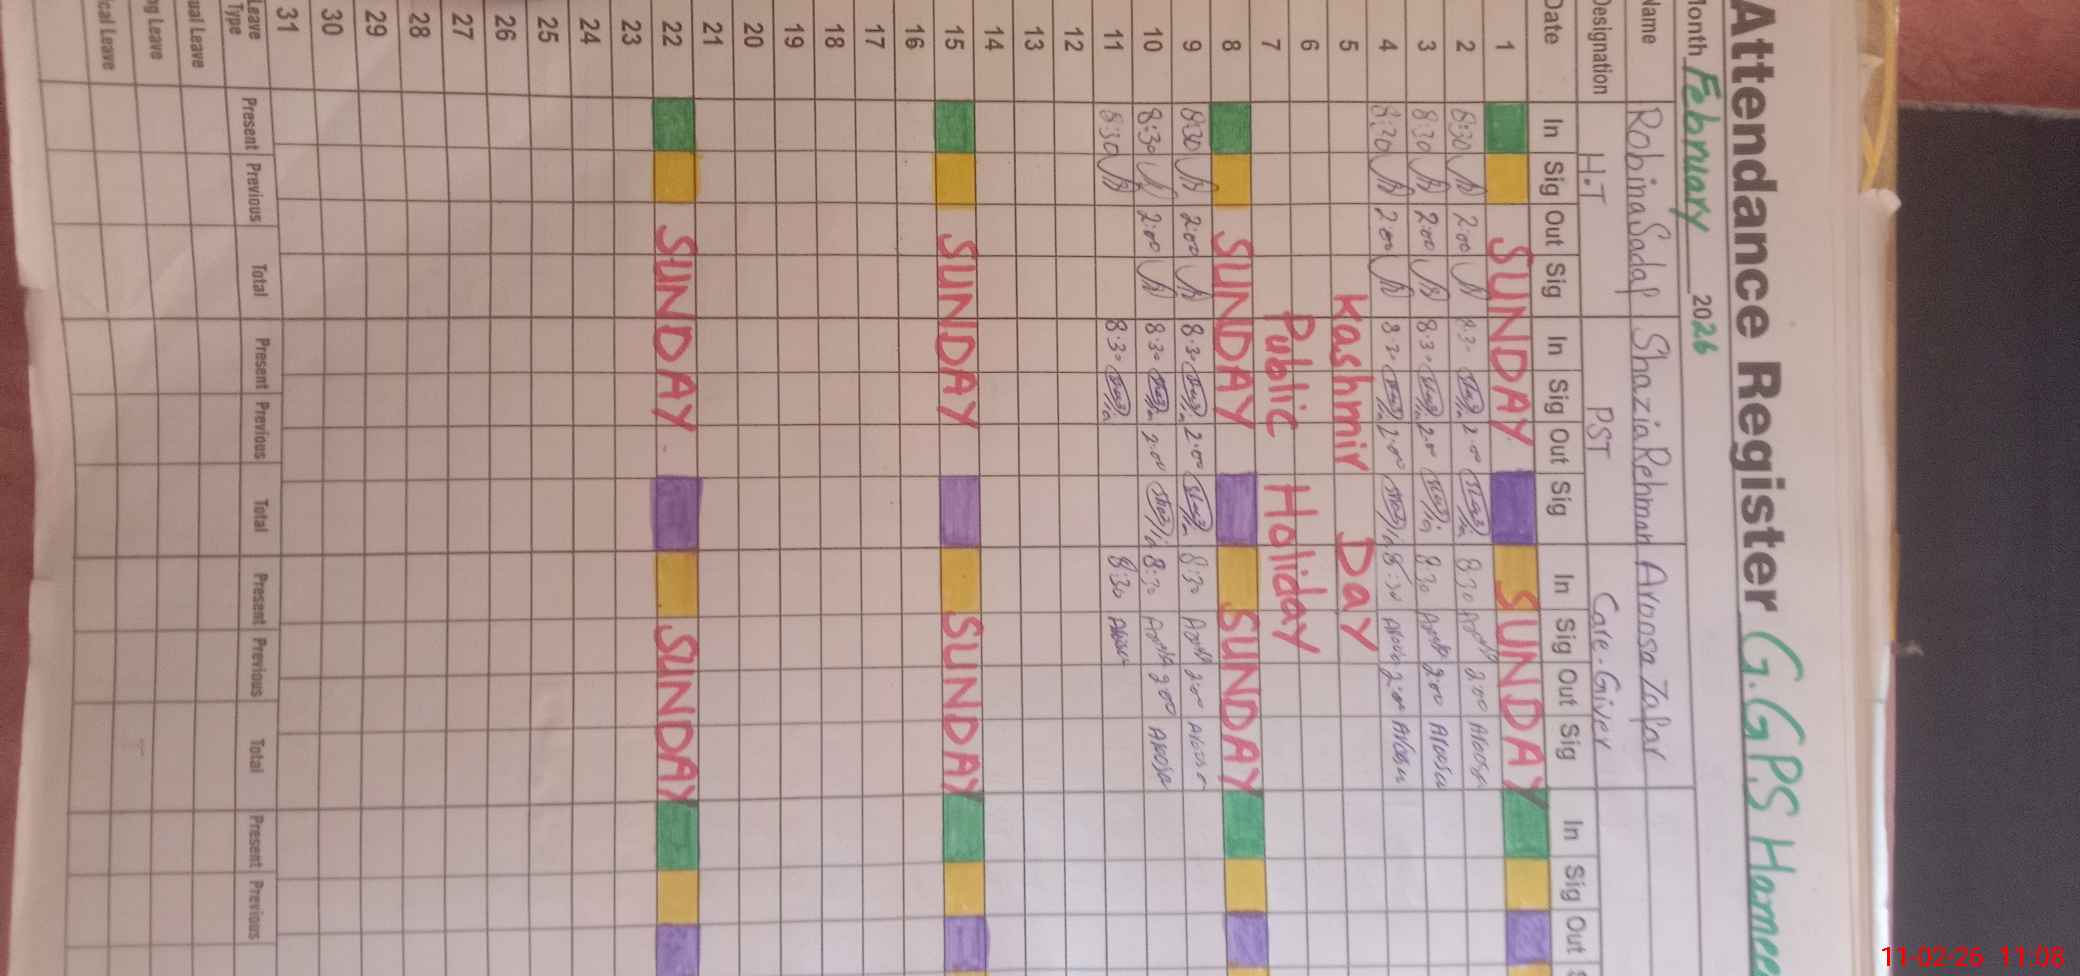 Attendance Register G.GPS Hamee
Month February 2026
Name Robina Sadaf Shazia Rehman Aroosa Zafar
Designation H.T PST Care-Giver
Date In Sig Out Sig In Sig Out Sig In Sig Out Sig In Sig Out S
1 SUNDAY SUNDAY
2 8:30 2:00 8:30 2:00 8:30 2:00 Aroosa
3 8:30 2:00 8:30 2:00 8:30 2:00 Aroosa
4 8:30 2:00 8:30 2:00 8:30 2:00 Aroosa
5 Kashmir Day
6
7 Public Holiday
8 SUNDAY SUNDAY
9 8:30 2:00 8:30 2:00 8:30 2:00 Aroosa
10 8:30 2:00 8:30 2:00 8:30 2:00 Aroosa
11 8:30 8:30 8:30 Aroosa
12
13
14
15 SUNDAY SUNDAY
16
17
18
19
20
21
22 SUNDAY SUNDAY
23
24
25
26
27
28
29
30
31
Leave Type Present Previous Total Present Previous Total Present Previous Total Present Previous
ual Leave
ng Leave
ical Leave
11-02-26 11:08